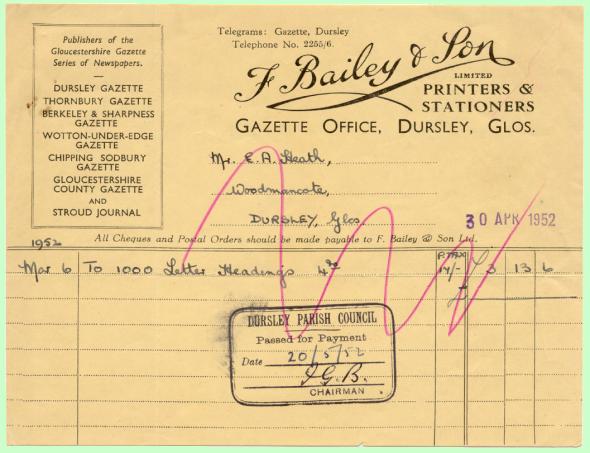 Publishers of the
Gloucestershire Gazette
Series of Newspapers.
—
DURSLEY GAZETTE
THORNBURY GAZETTE
BERKELEY & SHARPNESS
GAZETTE
WOTTON-UNDER-EDGE
GAZETTE
CHIPPING SODBURY
GAZETTE
GLOUCESTERSHIRE
COUNTY GAZETTE
AND
STROUD JOURNAL
Telegrams: Gazette, Dursley
Telephone No. 2255/6.
F. Bailey & Son
LIMITED
PRINTERS &
STATIONERS
GAZETTE OFFICE, DURSLEY, GLOS.
Mr. E. A. Heath,
Woodmancote,
DURSLEY, Glos.
30 APR 1952
1952
All Cheques and Postal Orders should be made payable to F. Bailey & Son Ltd.
Mar 6 To 1000 Letter Headings 4to P. TAX 14/- 3 13 6
DURSLEY PARISH COUNCIL
Passed for Payment
Date 20/5/52
J.G.B.
CHAIRMAN